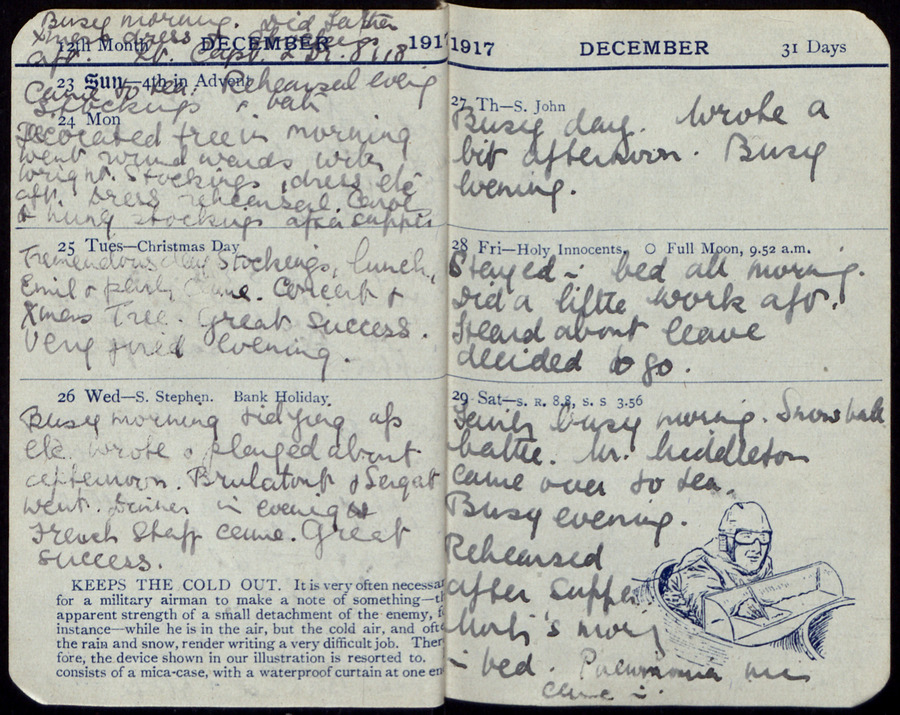 Busy morning. Did Father
Xmas dress & Stockings
12th Month DECEMBER 1917
aft. Lt. Capt. 2 Dr.
23 Sun—4th in Advent
Came to tea. Rehearsal eveng
Stockings & bath
24 Mon
Decorated tree in morning
went round wards with
Wright. Stockings, dress etc
aft. Dress rehearsal. Carols
& hung stockings after supper
25 Tues—Christmas Day
Tremendous day Stockings, lunch,
Emil & party came. Concert &
Xmas Tree. Great success.
Very tired evening.
26 Wed—S. Stephen. Bank Holiday.
Busy morning tidying up
etc. wrote & played about
afternoon. & Sergat
went. Dinner in evening &
French Staff came. Great
success.
KEEPS THE COLD OUT. It is very often necessar
for a military airman to make a note of something—t
apparent strength of a small detachment of the enemy, f
instance—while he is in the air, but the cold air, and oft
the rain and snow, render writing a very difficult job. Ther
fore, the device shown in our illustration is resorted to.
consists of a mica-case, with a waterproof curtain at one en
1917 DECEMBER 31 Days
27 Th—S. John
Busy day. Wrote a
bit afternoon. Busy
evening.
28 Fri—Holy Innocents, O Full Moon, 9.52 a.m.
Stayed in bed all morning.
Did a little work aft.
Heard about leave
decided to go.
29 Sat—S. R. 8.8, S. S 3.56
Fairly busy morning. Snow ball
battle. Mr. Middleton
came over to tea.
Busy evening.
Rehearsed
after supper
in bed. Pneumonia
came in.